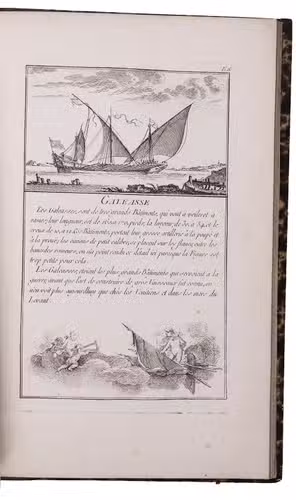 GALEASSE
Les Galeasses, sont de tres grands Bâtiments, qui vont à voiles et à
rames; leur longueur, est de 160 a 170 pieds, la largeur, de 30 a 34 et le
creux de 20 a
portent leur grosse artillerie à la poupe et
à la proue; les canons de petit calibre, se placent sur les flancs, entre les
bancs des rameurs, on n'a point rendu ce détail ici parceque la Figure est
trop petite pour cela.
Les Galeasses, étoient les plus grands Bâtiments qui servoient à la
guerre, avant que l'art de construire de gros Vaisseaux fut connu, on
n'en voit plus aujourd'huy que chés les Vénitiens et dans les mers du
Levant.